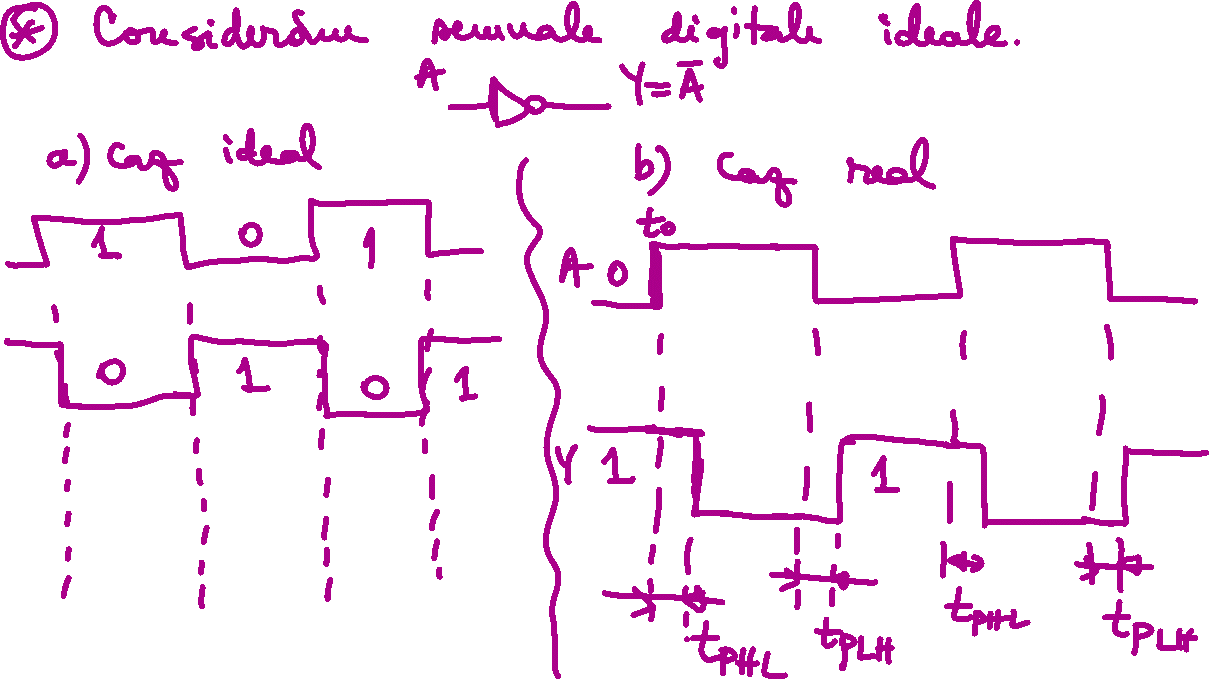 ⊛ Considerăm semnale digitale ideale.
A Y=A̅
a) Caz ideal
b) Caz real
t₀
1 0 1
A 0
0 1 0 1
Y 1 1
tPHL tPLH tPHL tPLH